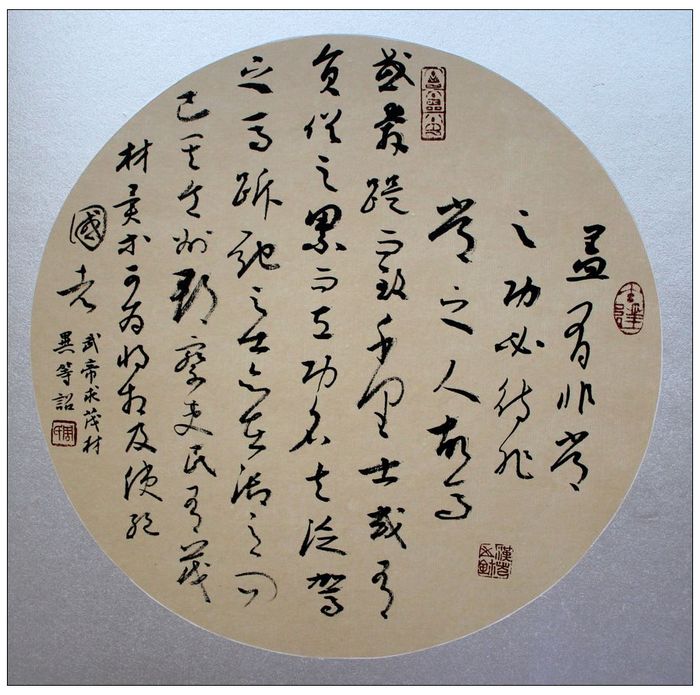 盖有非常
之功必待非
常之人故馬
或奔踶而致千里士或有
負俗之累而立功名夫泛駕
之馬跅弛之士亦在御之而
已其令州郡察吏民有茂
材異等可為將相及使絕
國者
武帝求茂材
異等詔